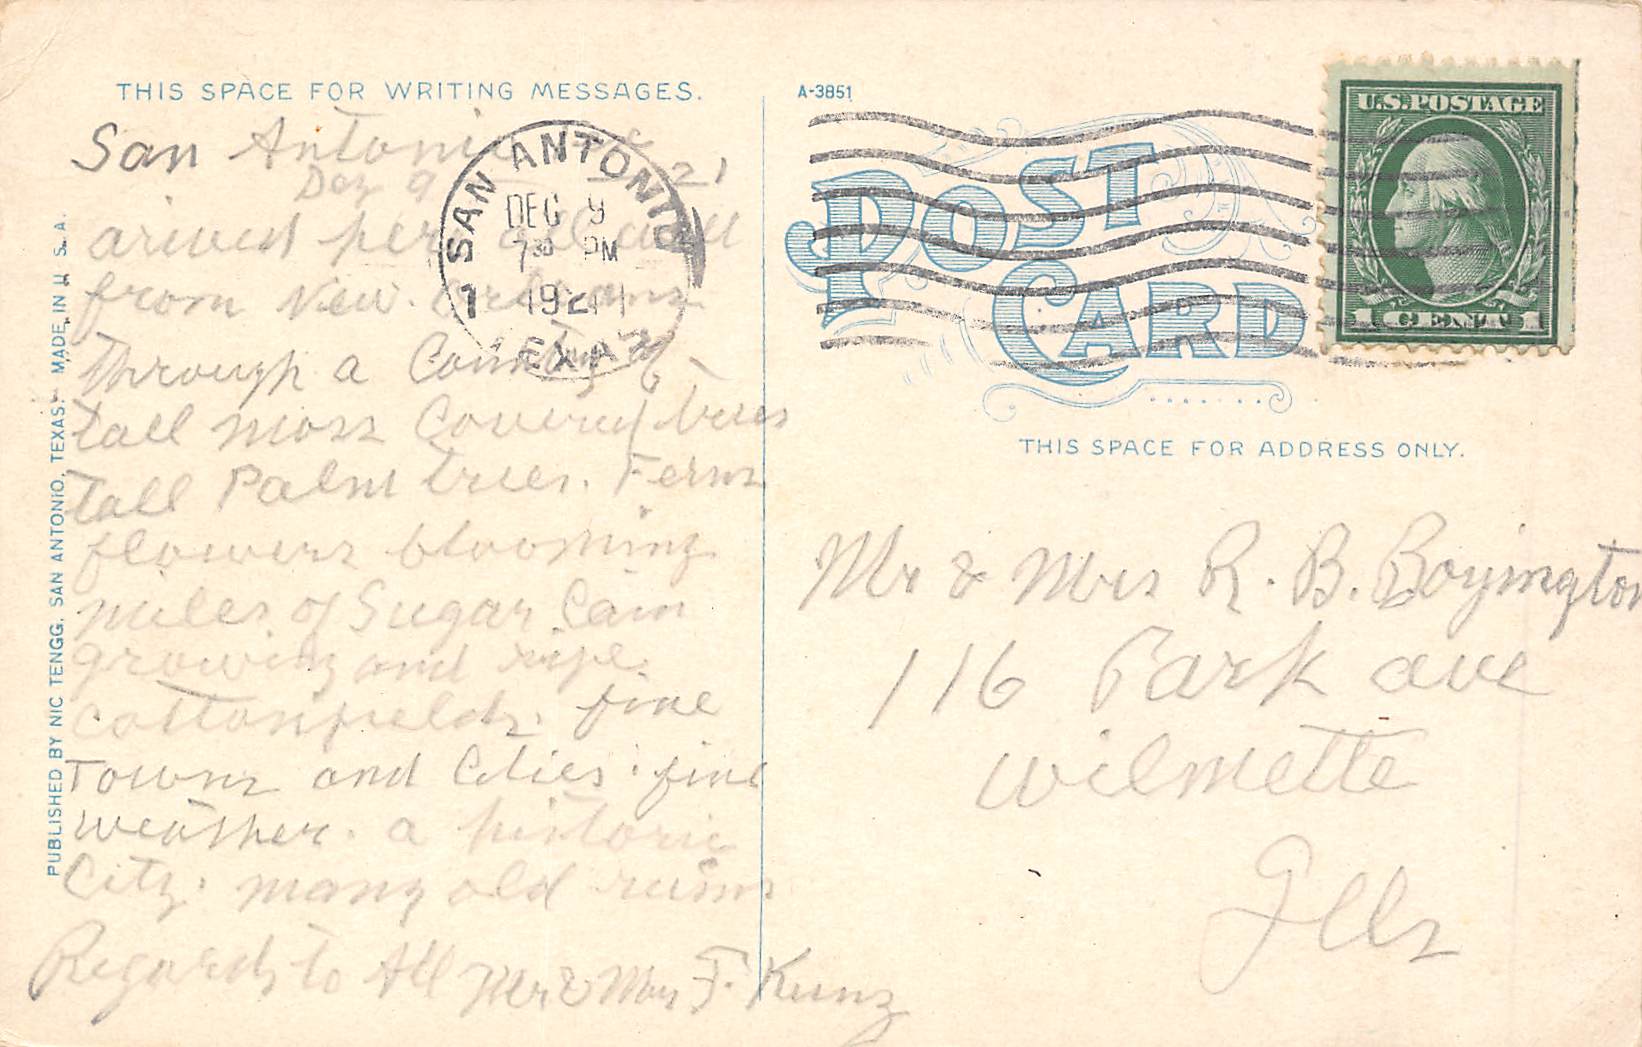 THIS SPACE FOR WRITING MESSAGES.
San Antonio
Dez 9 21
arived per
from New. Orleans
Through a Country of
tall moss Covered trees
tall Palm trees. Ferns
flowers blooming
miles of Sugar Cain
growing and ripe.
cottonfields. fine
Towns and Cities. fine
weather. a historic
City. many old ruins
Regards to All Mr & Mrs F. Kunz
PUBLISHED BY NIC TENGG, SAN ANTONIO, TEXAS. MADE IN U. S. A.
SAN ANTONIO
DEC 9
7 30 PM
1921
TEXAS
1
A-3851
POST
CARD
U.S. POSTAGE
1 CENT 1
THIS SPACE FOR ADDRESS ONLY.
Mr & Mrs R. B. Boyington
116 Park ave
Wilmette
Ills